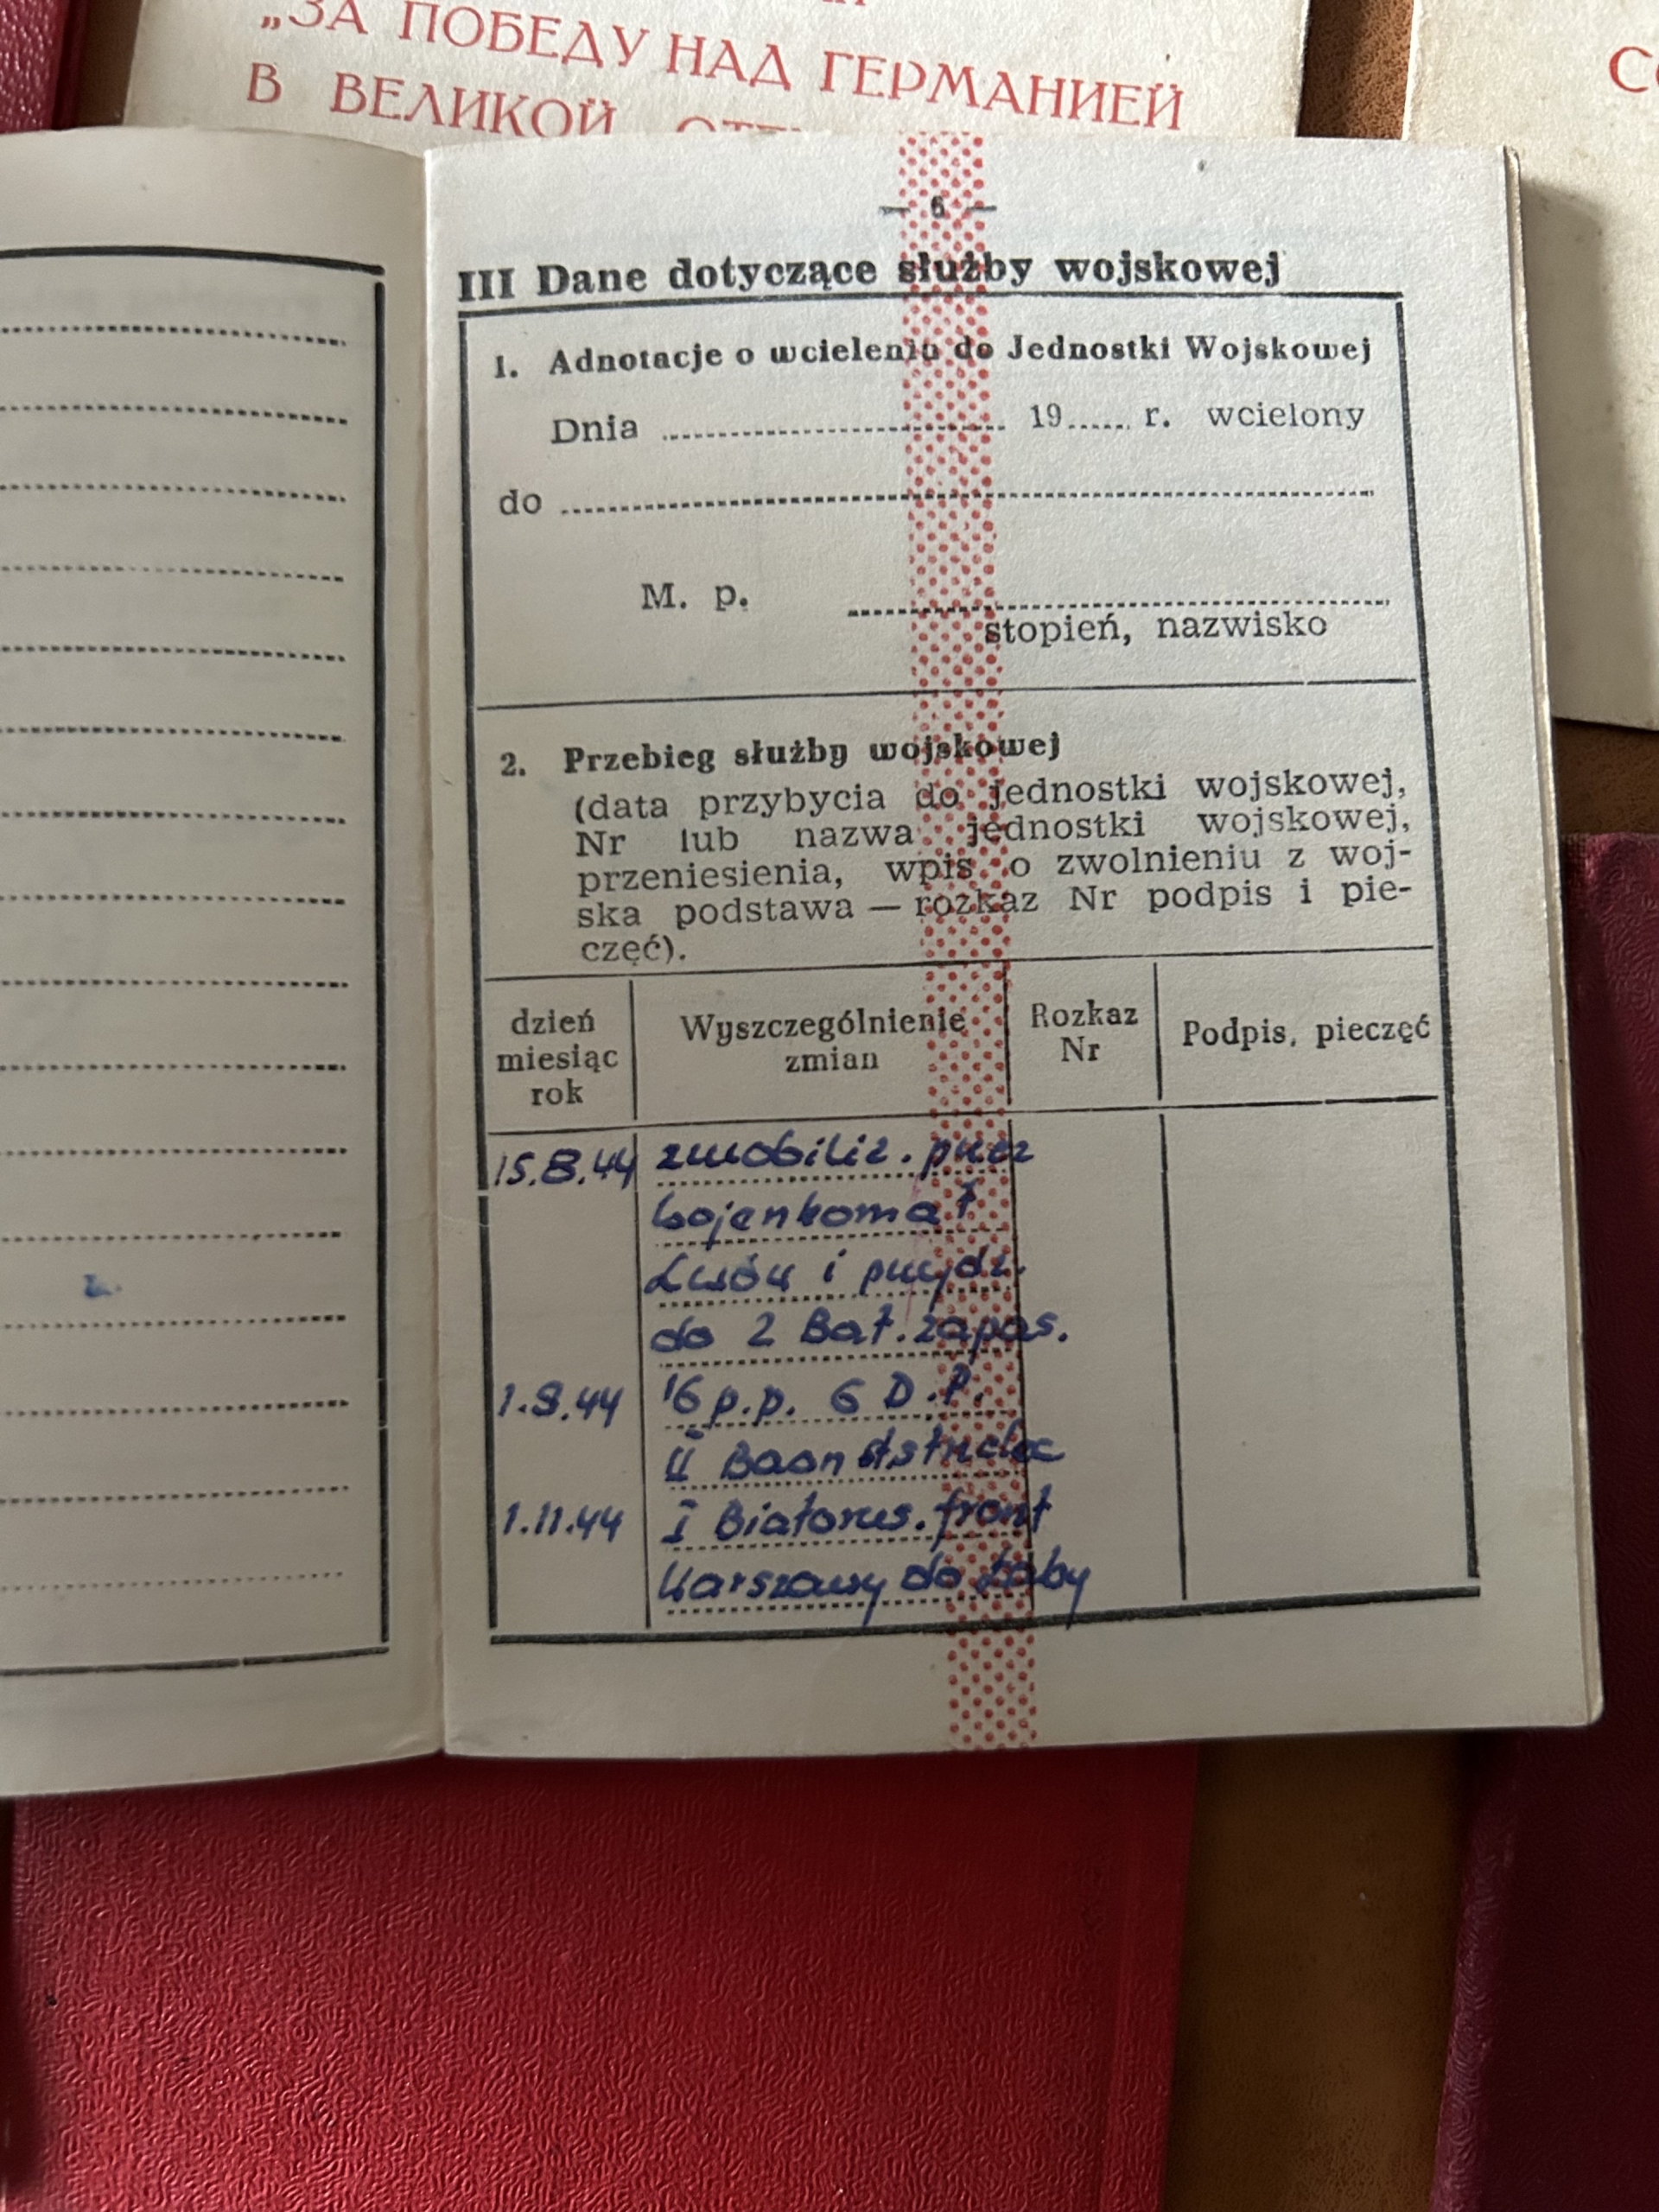 „ЗА ПОБЕДУ НАД ГЕРМАНИЕЙ
В ВЕЛИКОЙ
— 6 —
III Dane dotyczące służby wojskowej
1. Adnotacje o wcieleniu do Jednostki Wojskowej
Dnia ........ 19..... r. wcielony
do ........
M. p. ........
stopień, nazwisko
2. Przebieg służby wojskowej
(data przybycia do jednostki wojskowej,
Nr lub nazwa jednostki wojskowej,
przeniesienia, wpis o zwolnieniu z woj-
ska podstawa — rozkaz Nr podpis i pie-
częć).
dzień miesiąc rok
Wyszczególnienie zmian
Rozkaz Nr
Podpis, pieczęć
15.8.44 zmobiliz. przez
Wojenkomat
Lwów i przydz.
do 2 Bat. zapas.
1.9.44 16 p.p. 6 D.P.
II Baon
1.11.44 I Białorus. front
Warszawy do Łaby